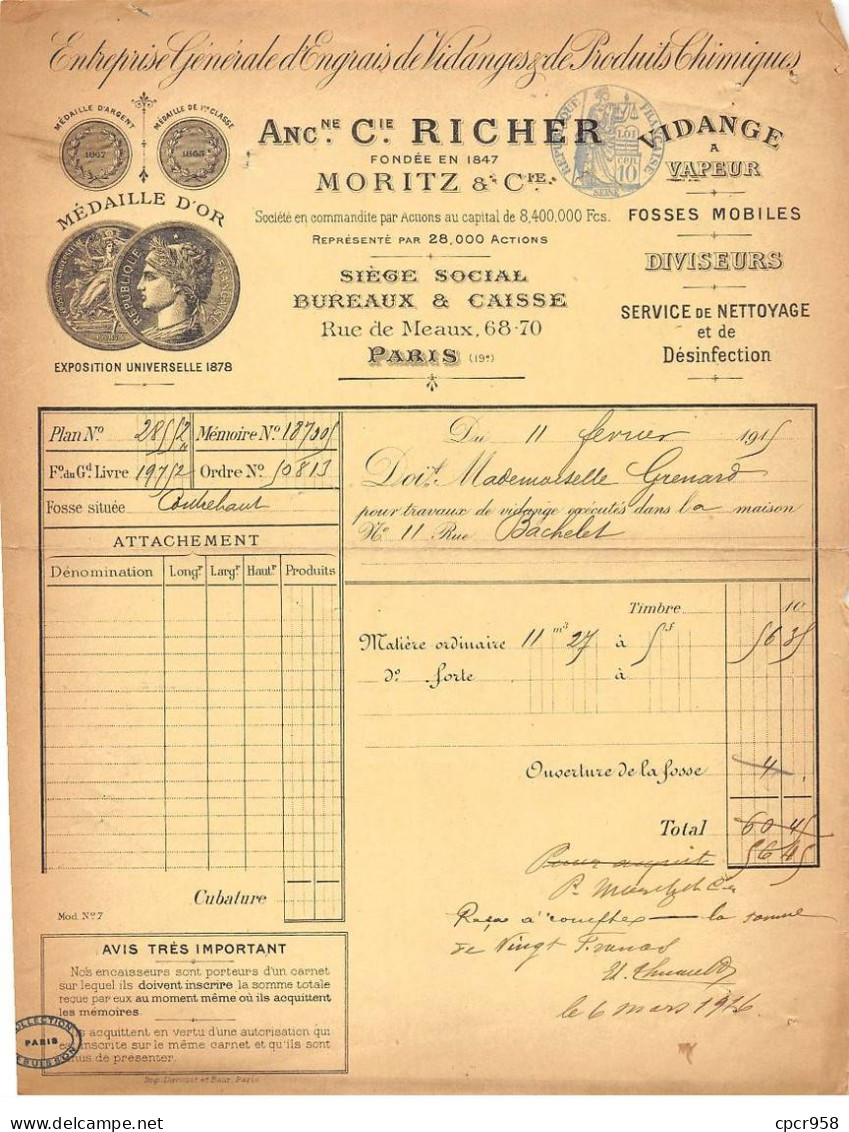 Entreprise Générale d'Engrais de Vidanges & de Produits Chimiques
MÉDAILLE D'ARGENT
MÉDAILLE DE 1re CLASSE
1867
1865
MÉDAILLE D'OR
RÉPUBLIQUE FRANÇAISE
EXPOSITION UNIVERSELLE 1878
ANC.NE CIE RICHER
FONDÉE EN 1847
MORITZ & CIE
Société en commandite par Actions au capital de 8,400,000 Fcs.
REPRÉSENTÉ PAR 28,000 ACTIONS
SIÈGE SOCIAL
BUREAUX & CAISSE
Rue de Meaux, 68-70
PARIS (19e)
RÉPUBLIQUE FRANÇAISE
10
SEINE
VIDANGE
A
VAPEUR
FOSSES MOBILES
DIVISEURS
SERVICE DE NETTOYAGE
et de
Désinfection
Plan No. 28552 Mémoire No. 18705
Fo. du Gd Livre 19752 Ordre No. 50813
Fosse située Contrehaut
ATTACHEMENT
Dénomination Longr Largr Hautr Produits
Cubature
Mod. No 7
Du 11 février 1915
Doit Mademoiselle Grenard
pour travaux de vidange exécutés dans la maison
No 11 Rue Bachelet
Timbre 10
Matière ordinaire 11 m3 27 à 5f 56 35
do forte à
Ouverture de la fosse 4
Total 60 45
56 45
Pour acquit
P. Moritz & Cie
Reçu à compte la somme
de Vingt Francs
le 6 mars 1916
AVIS TRÈS IMPORTANT
Nos encaisseurs sont porteurs d'un carnet
sur lequel ils doivent inscrire la somme totale
reçue par eux au moment même où ils acquittent
les mémoires.
Ils acquittent en vertu d'une autorisation qui
est inscrite sur le même carnet et qu'ils sont
tenus de présenter.
COLLECTION
PARIS
Paris
delcampe.net
cpcr958